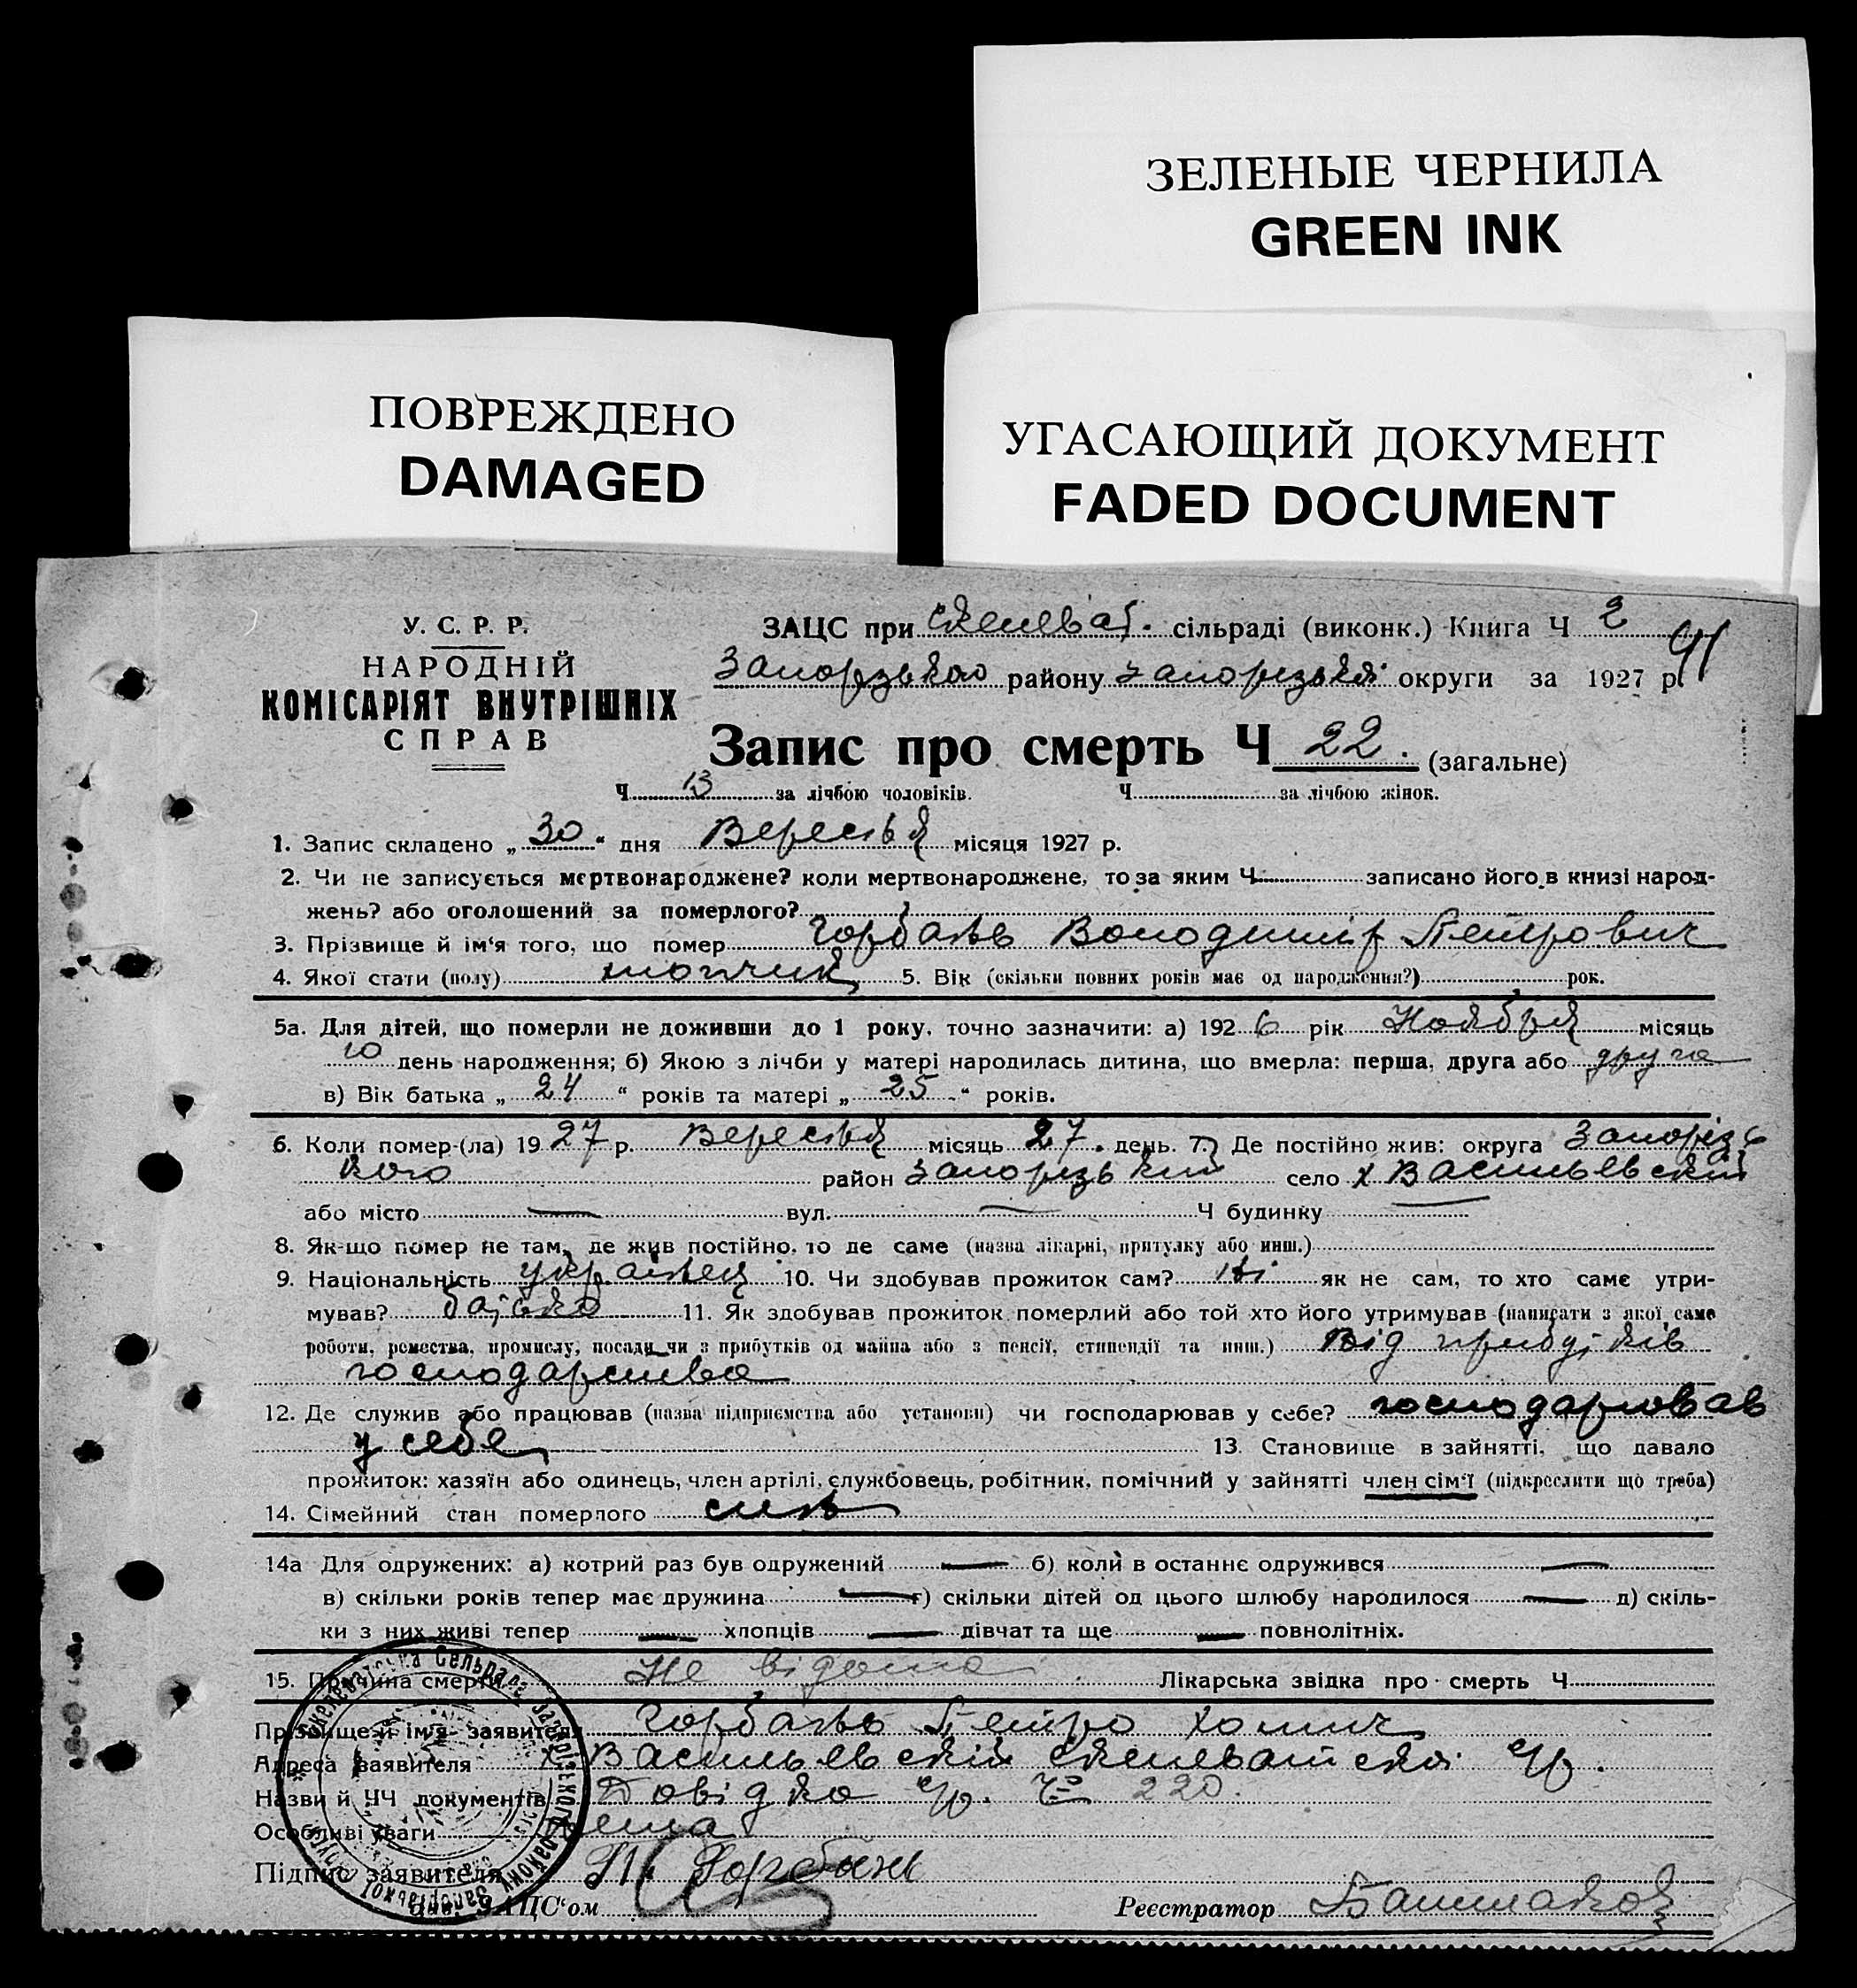 ЗЕЛЕНЫЕ ЧЕРНИЛА
GREEN INK
ПОВРЕЖДЕНО
DAMAGED
УГАСАЮЩИЙ ДОКУМЕНТ
FADED DOCUMENT
У. С. Р. Р.
НАРОДНІЙ
КОМІСАРІЯТ ВНУТРІШНІХ
СПРАВ
ЗАЦС при Скелеват. сільраді (виконк.) Книга Ч 2
91
Запорізького району Запорізької округи за 1927 р.
Запис про смерть Ч 22. (загальне)
Ч 13 за лічбою чоловіків. Ч за лічбою жінок.
1. Запис складено „ 30 “ дня Вересня місяця 1927 р.
2. Чи не записується мертвонароджене? коли мертвонароджене, то за яким Ч записано його в книзі народ-
жень? або оголошений за померлого?
3. Прізвище й ім‘я того, що помер Горбань Володимір Петрович
4. Якої стати (полу) хлопчик 5. Вік (скільки повних років має од народження?) рок.
5а. Для дітей, що померли не доживши до 1 року, точно зазначити: а) 192 6 рік Ноября місяць
10 день народження; б) Якою з лічби у матері народилась дитина, що вмерла: перша, друга або друга
в) Вік батька „ 24 “ років та матері „ 25 “ років.
6. Коли помер-(ла) 19 27 р. Вересня місяць 27. день. 7. Де постійно жив: округа Запорізь
кого район Запорізький село х Васильевский
або місто — вул. — Ч будинку —
8. Як-що помер не там, де жив постійно, то де саме (назва лікарні, притулку або инш.)
9. Національність українец 10. Чи здобував прожиток сам? Ні як не сам, то хто саме утри-
мував? батько 11. Як здобував прожиток померлий або той хто його утримував (написати з якої саме
роботи, ремества, промислу, посади чи з прибутків од майна або з пенсії, стипендії та инш.) Від прибутків
господарства
12. Де служив або працював (назва підприємства або установи) чи господарював у себе? господарював
у себе 13. Становище в зайнятті, що давало
прожиток: хазяїн або одинець, член артілі, службовець, робітник, помічний у зайнятті член сім‘ї (підкреслити що треба)
14. Сімейний стан померлого син
14а Для одружених: а) котрий раз був одружений — б) коли в останнє одружився —
в) скільки років тепер має дружина — г) скільки дітей од цього шлюбу народилося — д) скіль-
ки з них живі тепер — хлопців — дівчат та ще — повнолітніх.
15. Причина смерти Не відома Лікарська звідка про смерть Ч
Прізвище й ім‘я заявителя Горбань Петро Хомич
Адреса заявителя х Васильевский Скелеватской с/р.
Назви й ЧЧ документів Довідка с/р. Ч 220.
Особливі уваги Нема
Підпис заявителя П. Горбань
Зав. ЗАЦС‘ом Реєстратор Башмаков
Скелеватська Сельрада Запорізького району Запорізької округи